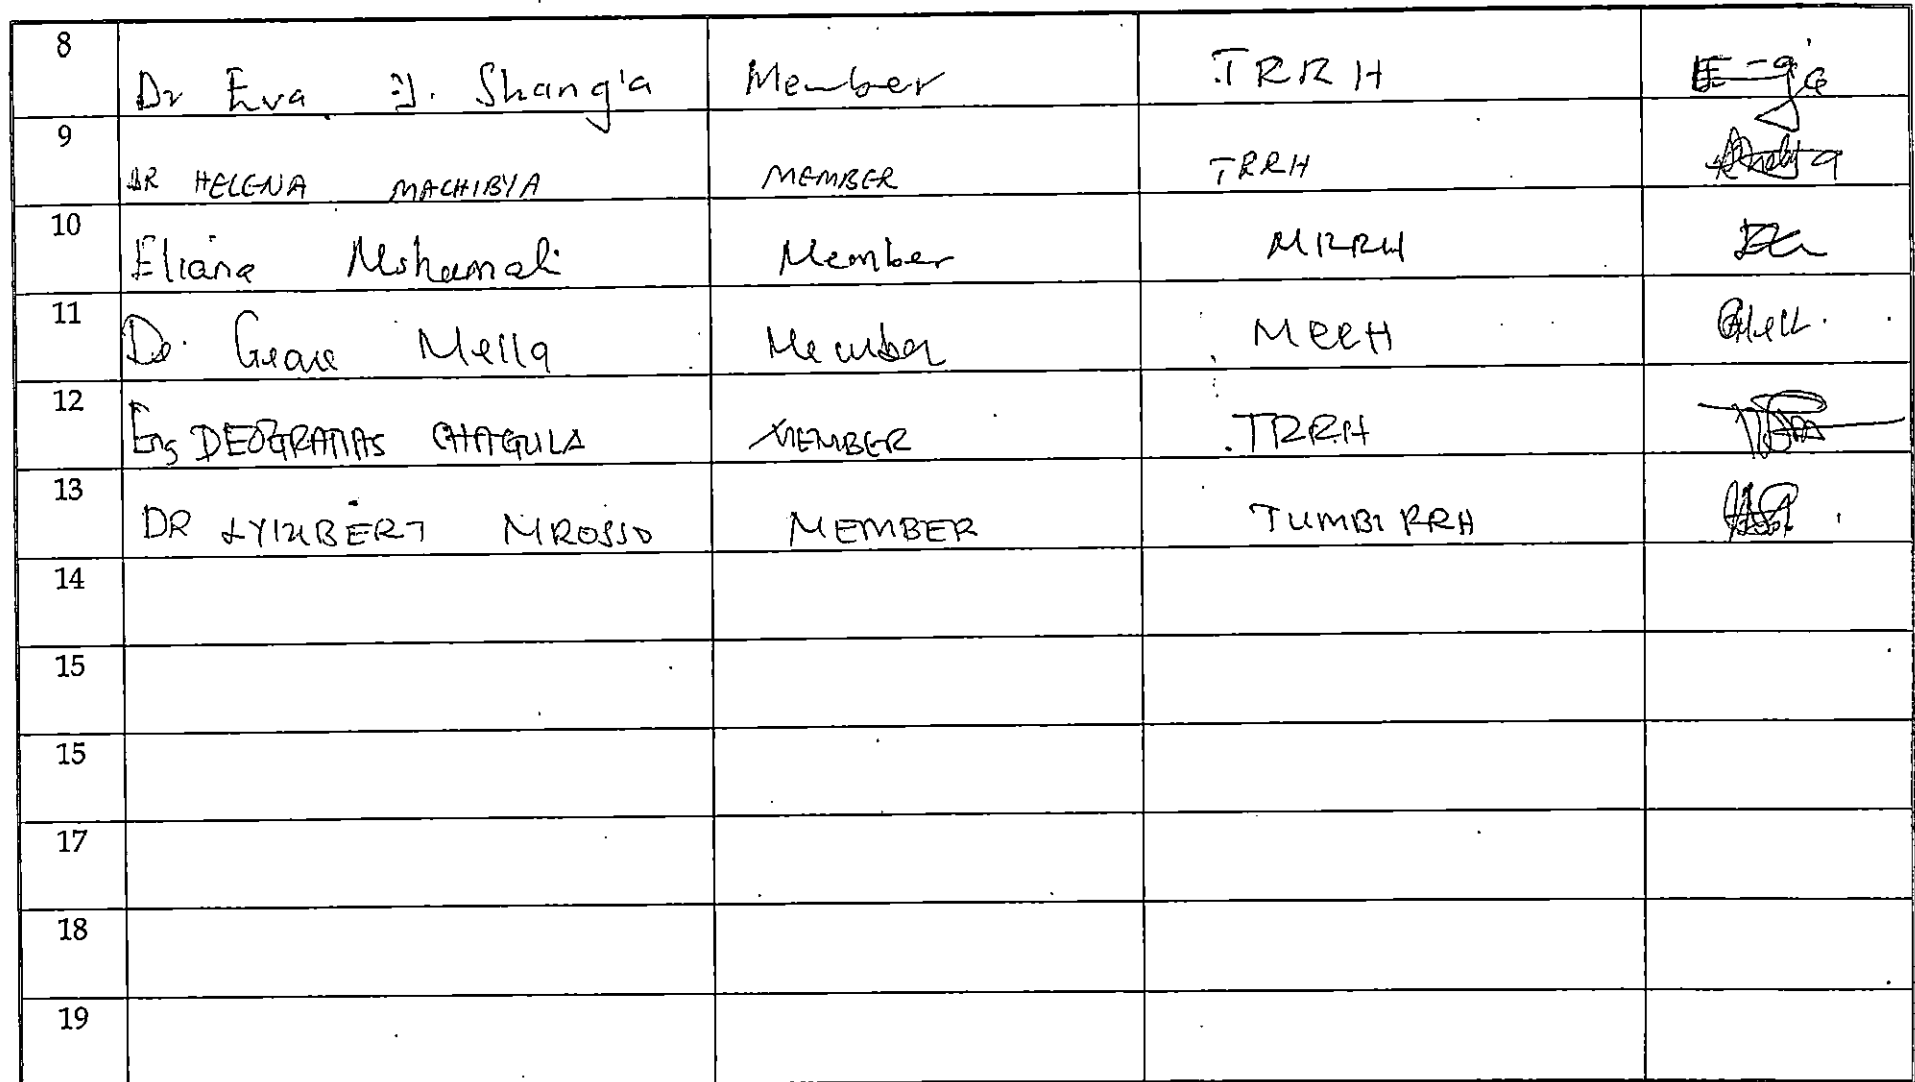 8 Dr Eva J. Shang'a Member TRRH
9 DR HELENA MACHIBYA MEMBER TRRH
10 Eliana Mshamali Member MRRH
11 Dr. Mella Member MRRH
12 Eng DEOGRATIAS CHAGULA MEMBER TRRH
13 DR MROSSO MEMBER TUMBI RRH
14
15
15
17
18
19